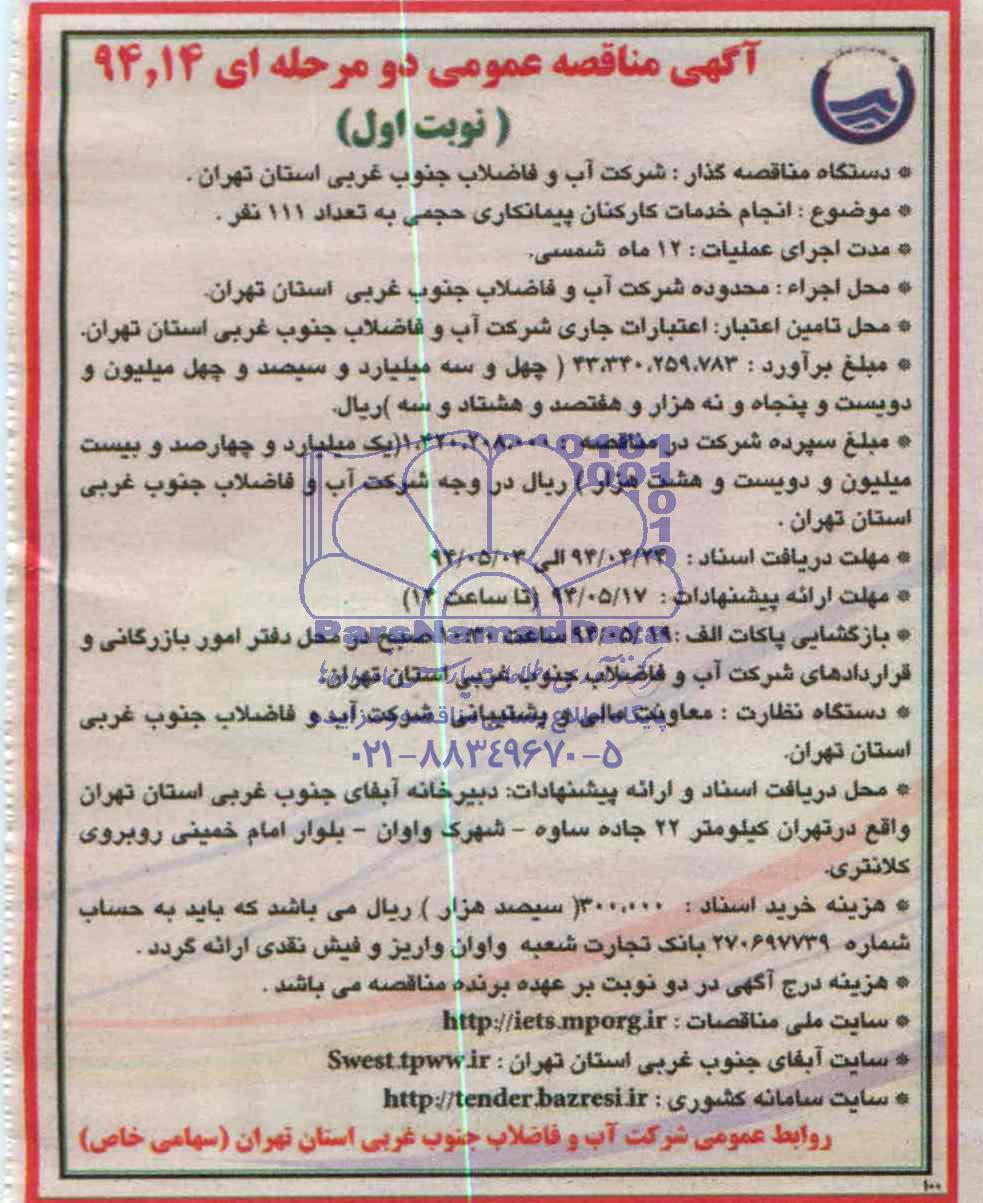 آگهی مناقصه عمومی دو مرحله ای ۹۴,۱۴
( نوبت اول)
* دستگاه مناقصه گذار : شرکت آب و فاضلاب جنوب غربی استان تهران .
* موضوع : انجام خدمات کارکنان پیمانکاری حجمی به تعداد ۱۱۱ نفر .
* مدت اجرای عملیات : ۱۲ ماه شمسی.
* محل اجراء : محدوده شرکت آب و فاضلاب جنوب غربی استان تهران.
* محل تامین اعتبار: اعتبارات جاری شرکت آب و فاضلاب جنوب غربی استان تهران.
* مبلغ برآورد : ۴۳،۳۴۰،۲۵۹،۷۸۳ ( چهل و سه میلیارد و سیصد و چهل میلیون و
دویست و پنجاه و نه هزار و هفتصد و هشتاد و سه )ریال.
* مبلغ سپرده شرکت در مناقصه : ۱،۴۲۰،۲۰۸،۰۰۰(یک میلیارد و چهارصد و بیست
میلیون و دویست و هشت هزار ) ریال در وجه شرکت آب و فاضلاب جنوب غربی
استان تهران .
* مهلت دریافت اسناد : ۹۴/۰۴/۲۴ الی ۹۴/۰۵/۰۳
* مهلت ارائه پیشنهادات : ۹۴/۰۵/۱۷ (تا ساعت ۱۴)
* بازگشایی پاکات الف :۹۴/۰۵/۱۹ ساعت ۱۰:۳۰ صبح در محل دفتر امور بازرگانی و
قراردادهای شرکت آب و فاضلاب جنوب غربی استان تهران.
* دستگاه نظارت : معاونت مالی و پشتیبانی شرکت آب و فاضلاب جنوب غربی
استان تهران.
* محل دریافت اسناد و ارائه پیشنهادات: دبیرخانه آبفای جنوب غربی استان تهران
واقع درتهران کیلومتر ۲۲ جاده ساوه - شهرک واوان - بلوار امام خمینی روبروی
کلانتری.
* هزینه خرید اسناد : ۳۰۰،۰۰۰( سیصد هزار ) ریال می باشد که باید به حساب
شماره ۲۷۰۶۹۷۷۳۹ بانک تجارت شعبه واوان واریز و فیش نقدی ارائه گردد .
* هزینه درج آگهی در دو نوبت بر عهده برنده مناقصه می باشد .
* سایت ملی مناقصات : http://iets.mporg.ir
* سایت آبفای جنوب غربی استان تهران : Swest.tpww.ir
* سایت سامانه کشوری : http://tender.bazresi.ir
روابط عمومی شرکت آب و فاضلاب جنوب غربی استان تهران (سهامی خاص)
۱۰۰
ParsNamadData
پایگاه اطلاع رسانی مناقصه و مزایده
۰۲۱-۸۸۳۴۹۶۷۰-۵